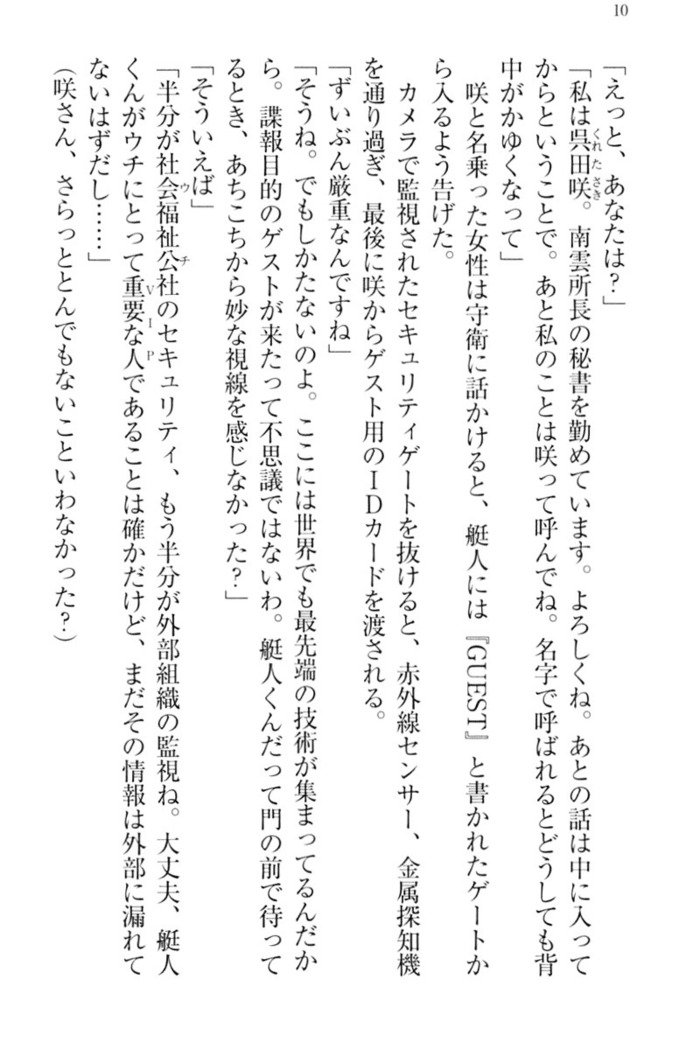 10
「えっと、あなたは?」
「私は呉田咲。南雲所長の秘書を勤めています。よろしくね。あとの話は中に入って
くれたさき
からということで。あと私のことは咲って呼んでね。名字で呼ばれるとどうしても背
中がかゆくなって」
　咲と名乗った女性は守衛に話かけると、艇人には『GUEST』と書かれたゲートか
ら入るよう告げた。
　カメラで監視されたセキュリティゲートを抜けると、赤外線センサー、金属探知機
を通り過ぎ、最後に咲からゲスト用のIDカードを渡される。
「ずいぶん厳重なんですね」
「そうね。でもしかたないのよ。ここには世界でも最先端の技術が集まってるんだか
ら。諜報目的のゲストが来たって不思議ではないわ。艇人くんだって門の前で待って
るとき、あちこちから妙な視線を感じなかった?」
「そういえば」
「半分が社会福祉公社のセキュリティ、もう半分が外部組織の監視ね。大丈夫、艇人
ウチ
くんがウチにとって重要な人であることは確かだけど、まだその情報は外部に漏れて
VIP
ないはずだし……」
(咲さん、さらっととんでもないこといわなかった?)